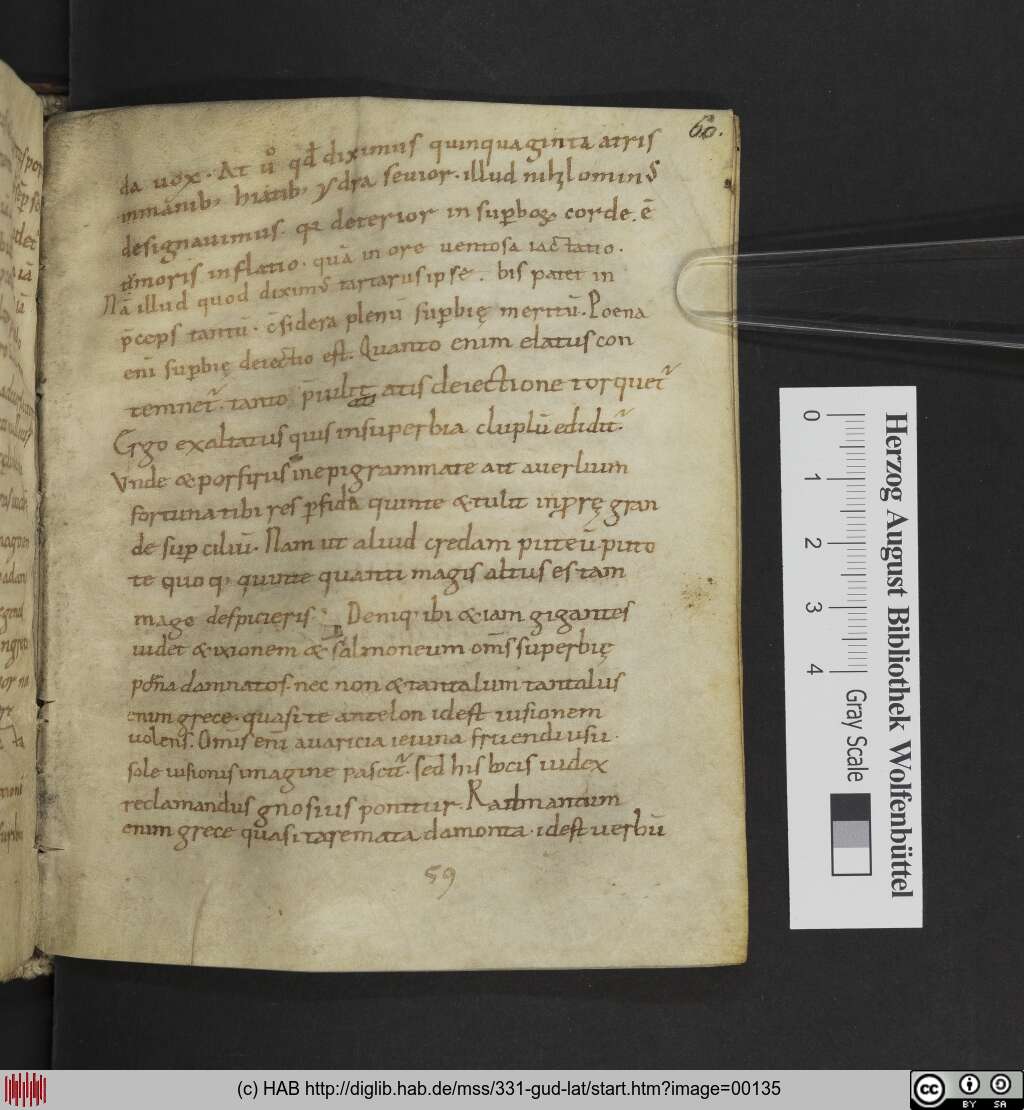 60.
da uox. At ů qđ diximus quinquaginta atris
inmānib; hiatib; ydra seuior. illud nihil omin9
designauimus. qa deterior in sup̄boꝝ corde. ē
timoris inflatio. quā in ore uentosa iactatio.
Nā illud quod dixim9 tartarus ipse. bis patet in
p̄ceps tantū. c̄sidera plenū sup̄bię meritū. Poena
eni sup̄bię deiectio est. Quanto enim elatus con
temnet̃. tanto atis deiectione torquet̃
Ergo exaltatus quis insuperbia duplū edidit̃.
Vnde & porfirus in epigrammate ait auerlium
fortuna tibi res p̄fida quinte & tulit gran
de sup̄ ciliū. Nam ut aliud credam puteū puto
te quo q; quinte quanti magis altus es tam
mage despicieris. Deniq; ibi & iam gigantes
uidet & ixionem & salmoneum om̄s superbię
pēna damnatos. nec non & tantalum tantalus
enim grece. quasi te antelon idest uisionem
uolens. Omīs enī auaricia ieiuna fruendi usu.
sole uisionis imagine pascit̃. sed his locis iudex
reclamandus gnosius ponitur. Radmantum
enim grece quasi taremata damonta. idest uerbū
59
Herzog August Bibliothek Wolfenbüttel
0 1 2 3 4
Gray Scale
(c) HAB http://diglib.hab.de/mss/331-gud-lat/start.htm?image=00135
cc BY SA